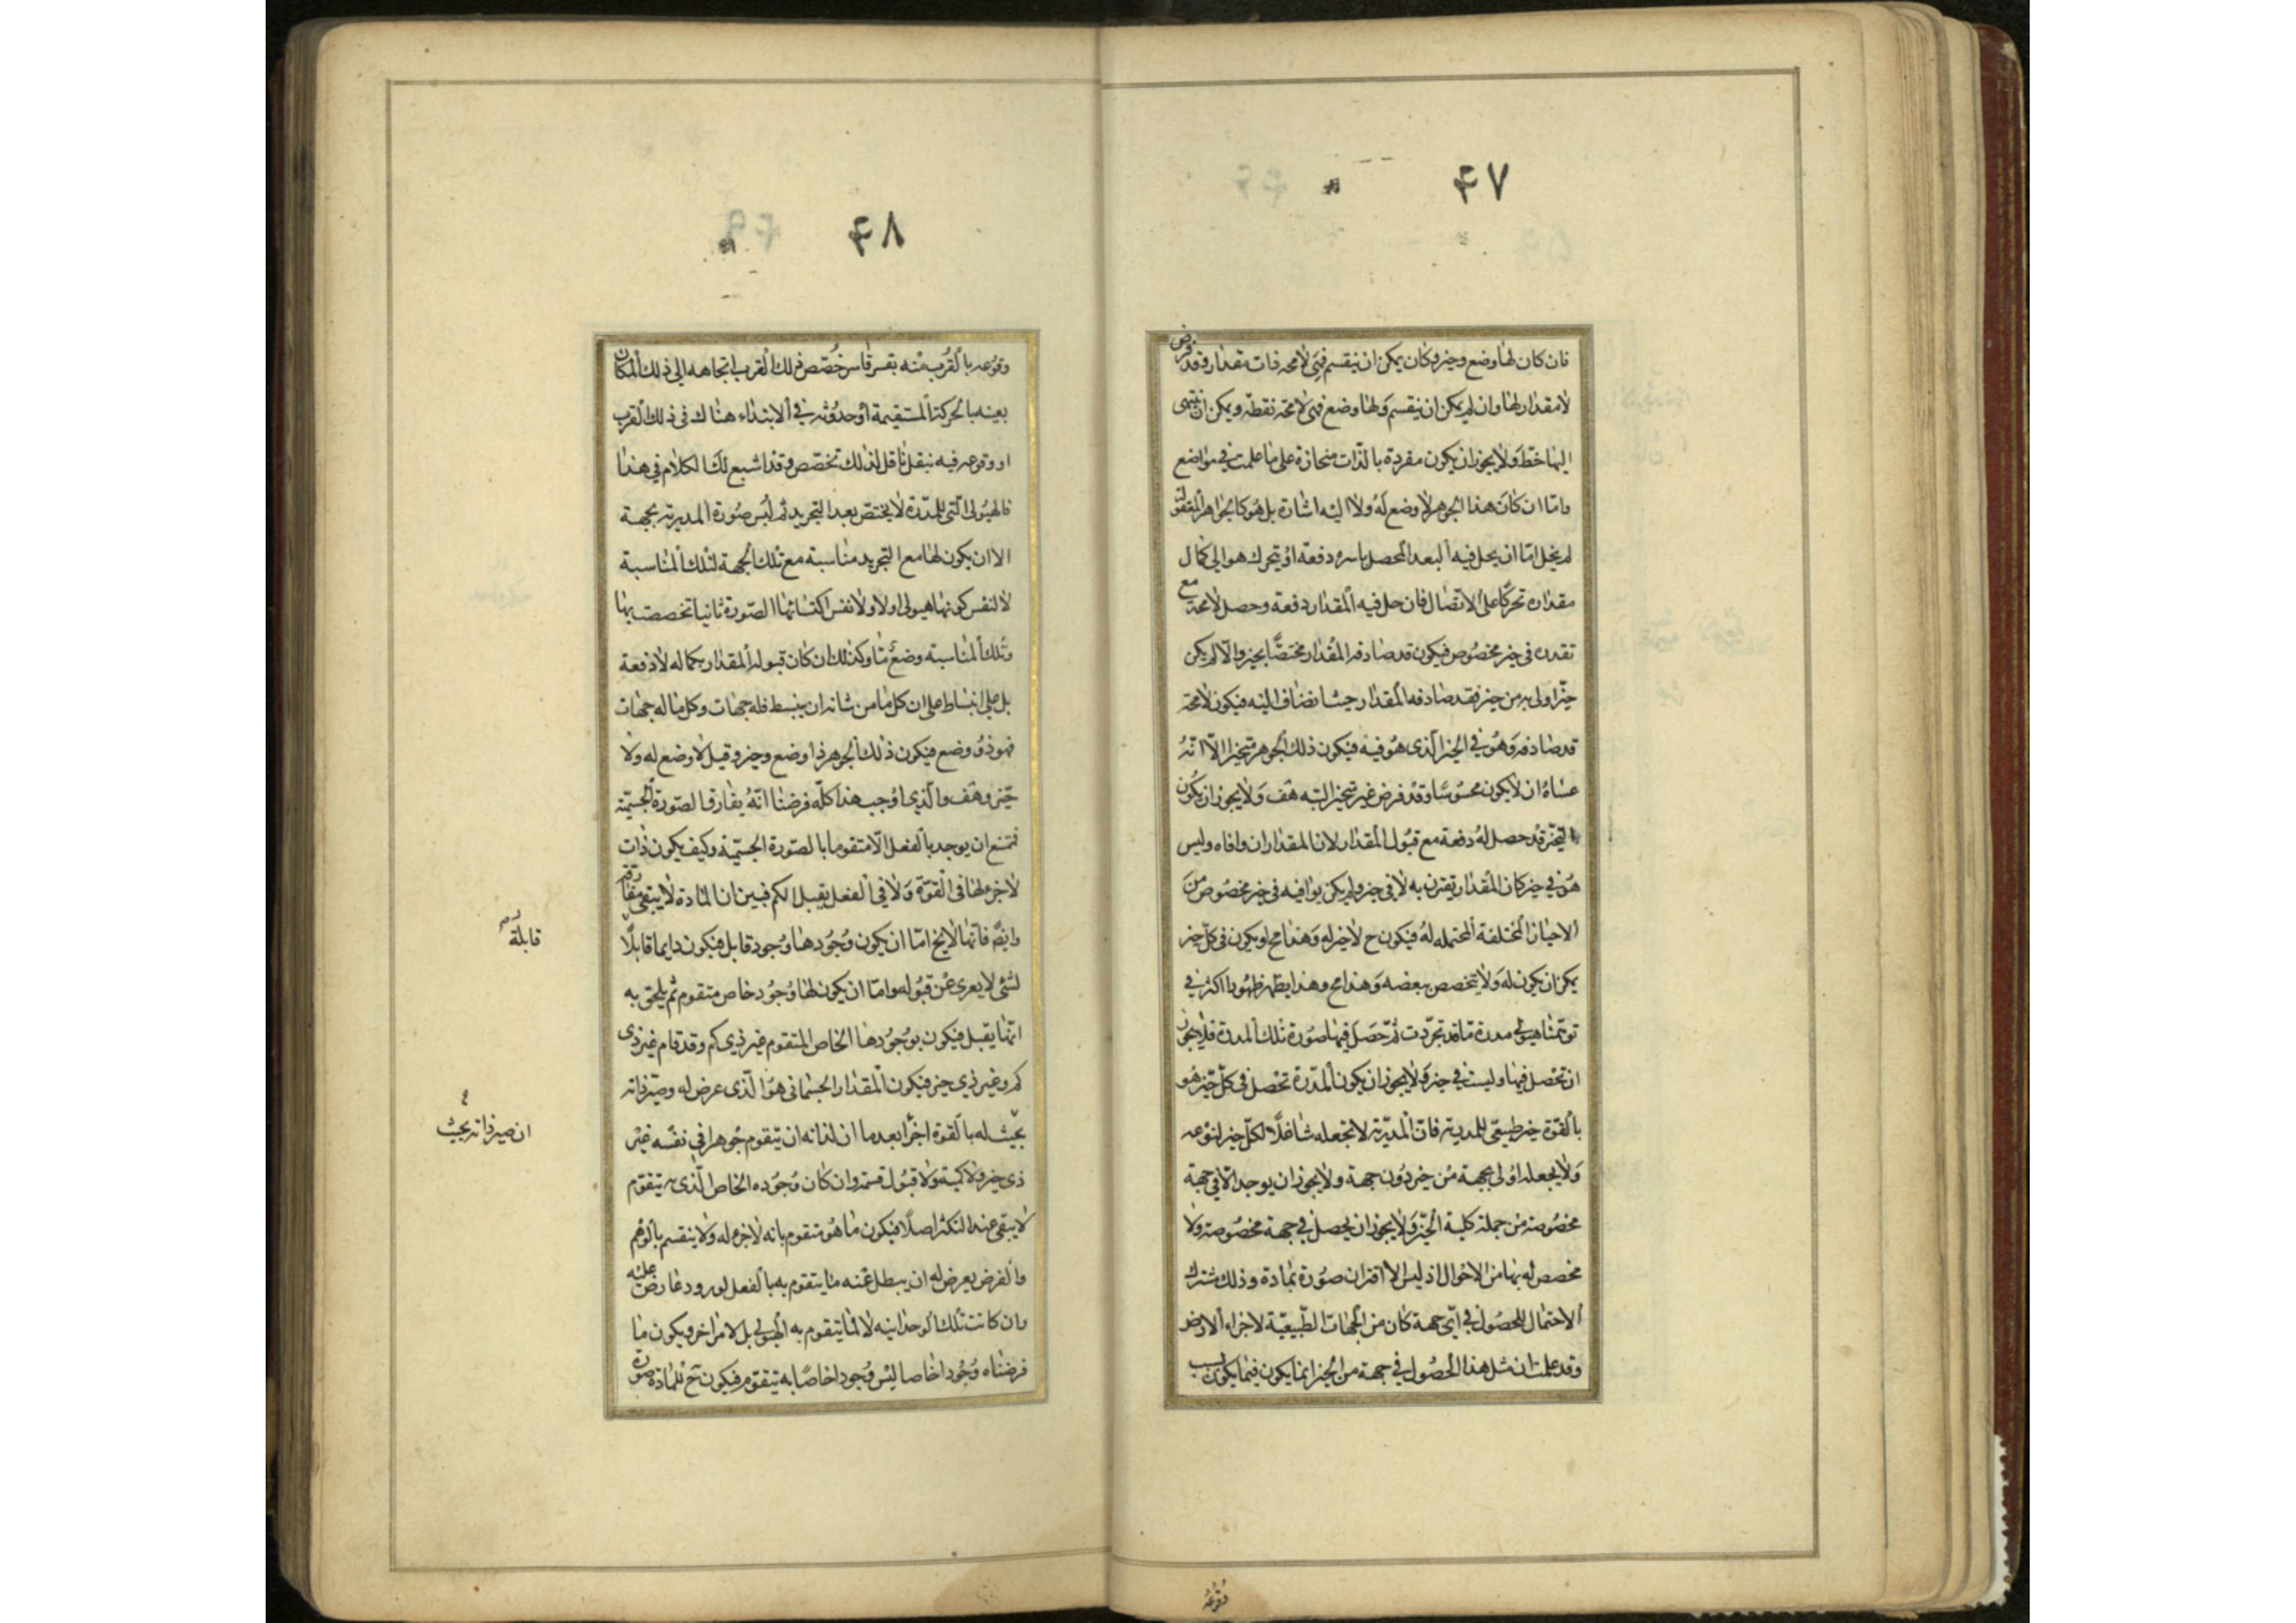 ۴۷
فان كان لها وضع وحيز وكان يمكن ان ينقسم فهى لامحه ذات مقدار وقد فرض
لا مقدار لها وان لم يكن ان ينقسم ولها وضع فهى لا محة نقطة ويمكن ان ينتهى
اليها خط ولا يجوز ان يكون مفردة بالذات منحازة على ما علمت فى مواضع
واما ان كان هذا الجوهر لا وضع له ولا اليه اشارة بل هو كالجواهر المعقولة
لم يخل اما ان يحل فيه البعد المحصل باسره دفعة او يتحرك هو الى كمال
مقداره تحركا على الاتصال فان حل فيه المقدار دفعة وحصل لامحة مع
تقدره فى حيز مخصوص فيكون قد صادفه المقدار مختصا بحيز والا لم يكن
حيز اولى به من حيز فقد صادفه المقدار حيث انضاف اليه فيكون لامحة
قد صادفه وهو فى الحيز الذى هو فيه فيكون ذلك الجوهر متحيزا الا انه
عساه ان لا يكون محسوسا وقد فرض غير متحيز البته هف ولا يجوز ان يكون
التحيز قد حصل له دفعة مع قبول المقدار لان المقدار ان وافاه وليس
هو فى حيز كان المقدار يقترن به لا فى حيز ولم يكن يوافيه فى حيز مخصوص من
الاحياز المختلفة المحتمله له فيكون ح لا حيز له وهذا مح او يكون فى كل حيز
يمكن ان يكون له ولا يتخصص ببعضه وهذا مح وهذا يظهر ظهورا اكثر فى
توهمنا هيولى مدرة ما قد تجردت ثم حصل فيها صورة تلك المدرة فلا يجوز
ان تحصل فيها وليست فى حيز ولا يجوز ان يكون المدرة تحصل فى كل حيز هو
بالقوة حيز طبيعى للمدرية فان المدرية لا تجعله شاغلا لكل حيز لنوعه
ولا يجعله اولى بجهة من حيز دون جهة ولا يجوز ان يوجد الا فى جهة
مخصوصة من جملة كلية الحيز ولا يجوز ان يحصل فى جهة مخصوصة ولا
مخصص له بها من الاحوال اذ ليس الا اقتران صورة بمادة وذلك مشترك
الاحتمال للحصول فى اى جهة كان من الجهات الطبيعية لاجزاء الارض
وقد علمت ان مثل هذا الحصول فى جهة من الحيز انما يكون فيما يكون بسبب
وقوعه
۴۸
وقوعه بالقرب منه بقسر قاسر خصص ذلك القرب اتجاهه الى ذلك المكان
بعينه بالحركة المستقيمة او حدوثه فى الابتداء هناك فى ذلك القرب
او وقوعه فيه بنقل ناقل لذلك تخصص وقد اشبع لك الكلام فى هذا
فالهيولى التى للمدرة لا يختص بعد التجريد ثم لبس صورة المدرية بجهة
الا ان يكون لها مع التجريد مناسبة مع تلك الجهة لتلك المناسبة
لا لنفس كونها هيولى اولا ولا نفس اكتسائها الصورة ثانيا تخصصت بها
وتلك المناسبة وضع ما وكذلك ان كان قبوله المقدار بكماله لا دفعة
بل على انبساط على ان كل ما من شانه ان ينبسط فله جهات وكل ما له جهات
فهو ذو وضع فيكون ذلك الجوهر ذا وضع وحيز وقيل لا وضع له ولا
حيز وهف والذى اوجب هذا كله فرضنا انه يفارق الصورة الجسمية
فتمنع ان يوجد بالفعل الا متقوما بالصورة الجسمية وكيف يكون ذات
لا جزء لها فى القوة ولا فى الفعل يقبل الكم فبين ان المادة لا يبقى مفارقة
وايضا فانها لايخ اما ان يكون وجودها وجود قابل فيكون دايما قابلا
لشئ لا يعرى عن قبوله واما ان يكون لها وجود خاص متقوم ثم يلحق به
انها يقبل فيكون بوجودها الخاص المتقوم غير ذى كم وقد قام غير ذى
كم وغير ذى حيز فيكون المقدار الجسمانى هو الذى عرض له وصير ذاته
بحيث له بالقوة اجزا بعد ما ان لذاته ان يتقوم جوهرا فى نفسه غير
ذى حيز ولا كمية ولا قبول قسمة وان كان وجوده الخاص الذى به يتقوم
لا يبقى عند التكثر اصلا فيكون ما هو متقوم بانه لا جزء له ولا ينقسم بالوهم
والفرض يعرض له ان يبطل عنه ما يتقوم به بالفعل لورود عارض عليه
وان كانت تلك الوحدانية لا لما يتقوم به الهيولى بل لامر اخر ويكون ما
فرضناه وجودا خاصا ليس وجودا خاصا به يتقوم فيكون ح للمادة صورة
قابلة
ان صير ذاته بحيث